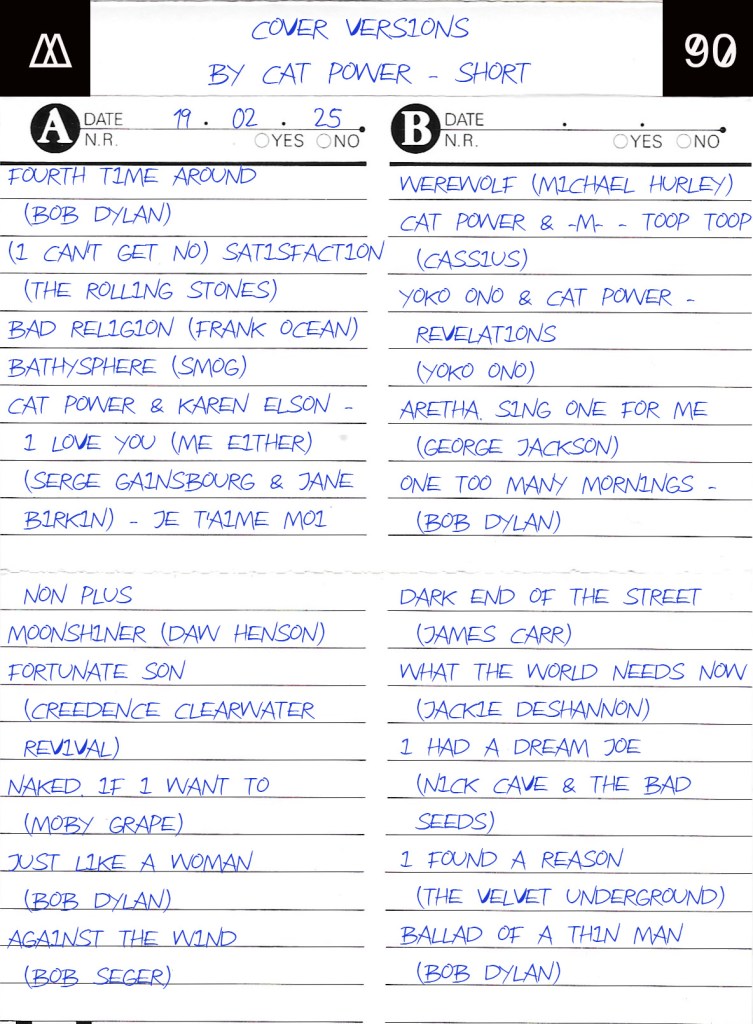 COVER VERSIONS
BY CAT POWER - SHORT
90
A DATE 19 . 02 . 25
N.R. YES NO
FOURTH TIME AROUND
(BOB DYLAN)
(I CANT GET NO) SATISFACTION
(THE ROLLING STONES)
BAD RELIGION (FRANK OCEAN)
BATHYSPHERE (SMOG)
CAT POWER & KAREN ELSON -
I LOVE YOU (ME EITHER)
(SERGE GAINSBOURG & JANE
BIRKIN) - JE T'AIME MOI
NON PLUS
MOONSHINER (DAW HENSON)
FORTUNATE SON
(CREEDENCE CLEARWATER
REVIVAL)
NAKED, IF I WANT TO
(MOBY GRAPE)
JUST LIKE A WOMAN
(BOB DYLAN)
AGAINST THE WIND
(BOB SEGER)
B DATE . .
N.R. YES NO
WEREWOLF (MICHAEL HURLEY)
CAT POWER & -M- - TOOP TOOP
(CASSIUS)
YOKO ONO & CAT POWER -
REVELATIONS
(YOKO ONO)
ARETHA, SING ONE FOR ME
(GEORGE JACKSON)
ONE TOO MANY MORNINGS -
(BOB DYLAN)
DARK END OF THE STREET
(JAMES CARR)
WHAT THE WORLD NEEDS NOW
(JACKIE DESHANNON)
I HAD A DREAM JOE
(NICK CAVE & THE BAD
SEEDS)
I FOUND A REASON
(THE VELVET UNDERGROUND)
BALLAD OF A THIN MAN
(BOB DYLAN)